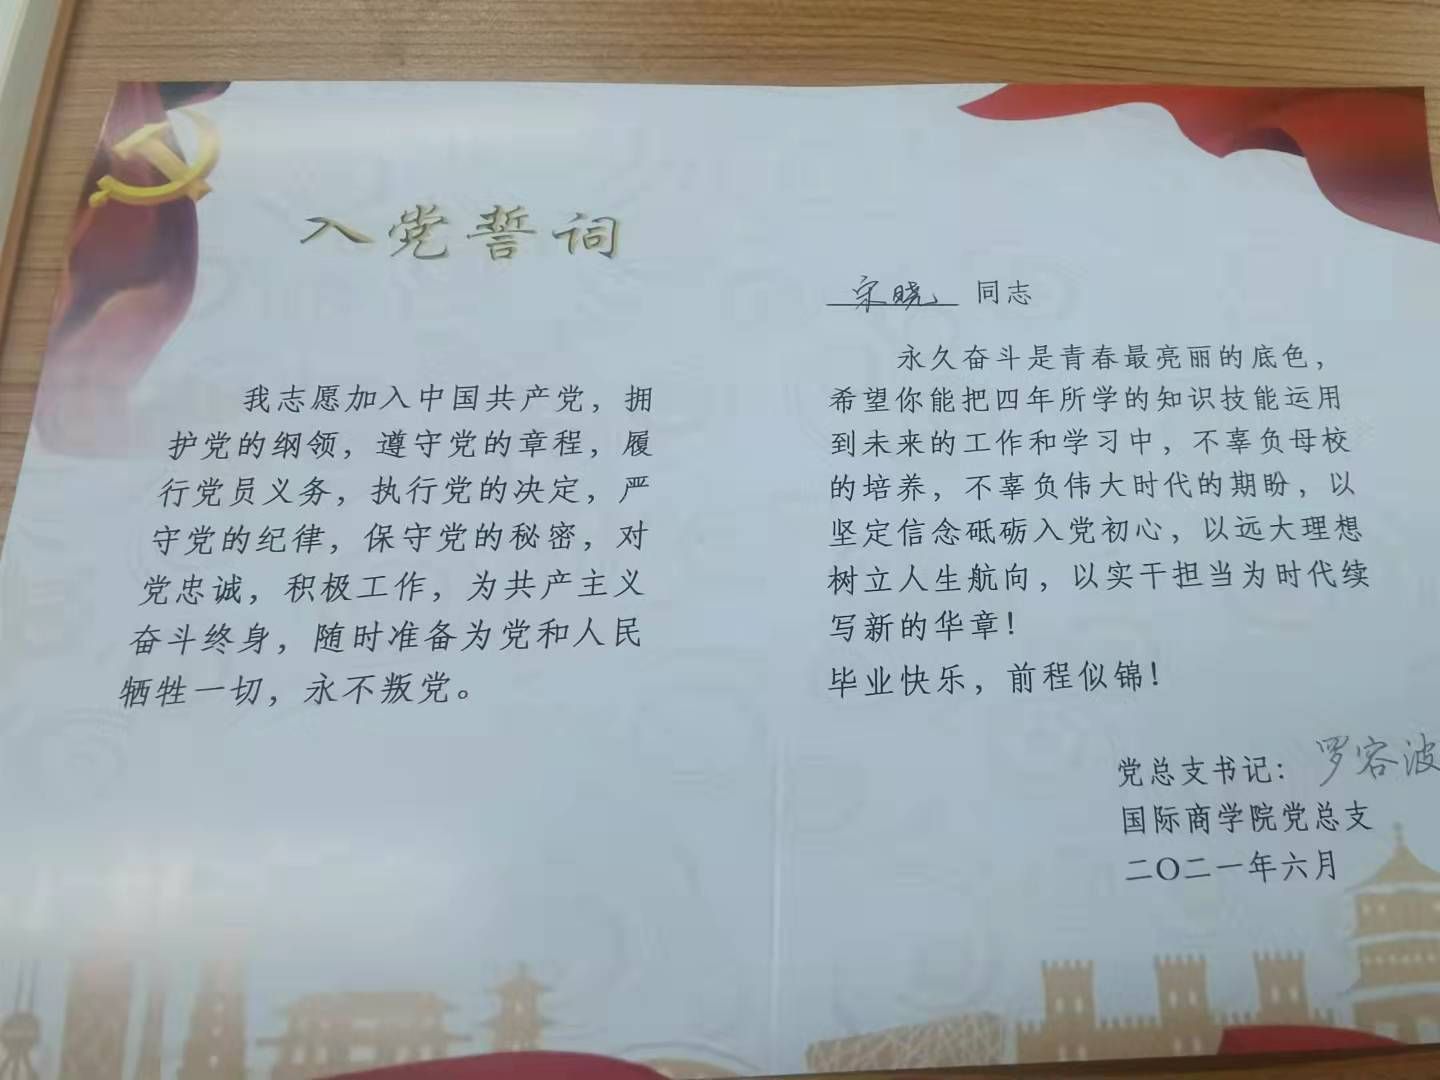 入党誓词
我志愿加入中国共产党，拥
护党的纲领，遵守党的章程，履
行党员义务，执行党的决定，严
守党的纪律，保守党的秘密，对
党忠诚，积极工作，为共产主义
奋斗终身，随时准备为党和人民
牺牲一切，永不叛党。
宋晓 同志
永久奋斗是青春最亮丽的底色，
希望你能把四年所学的知识技能运用
到未来的工作和学习中，不辜负母校
的培养，不辜负伟大时代的期盼，以
坚定信念砥砺入党初心，以远大理想
树立人生航向，以实干担当为时代续
写新的华章！
毕业快乐，前程似锦！
党总支书记：罗容波
国际商学院党总支
二〇二一年六月